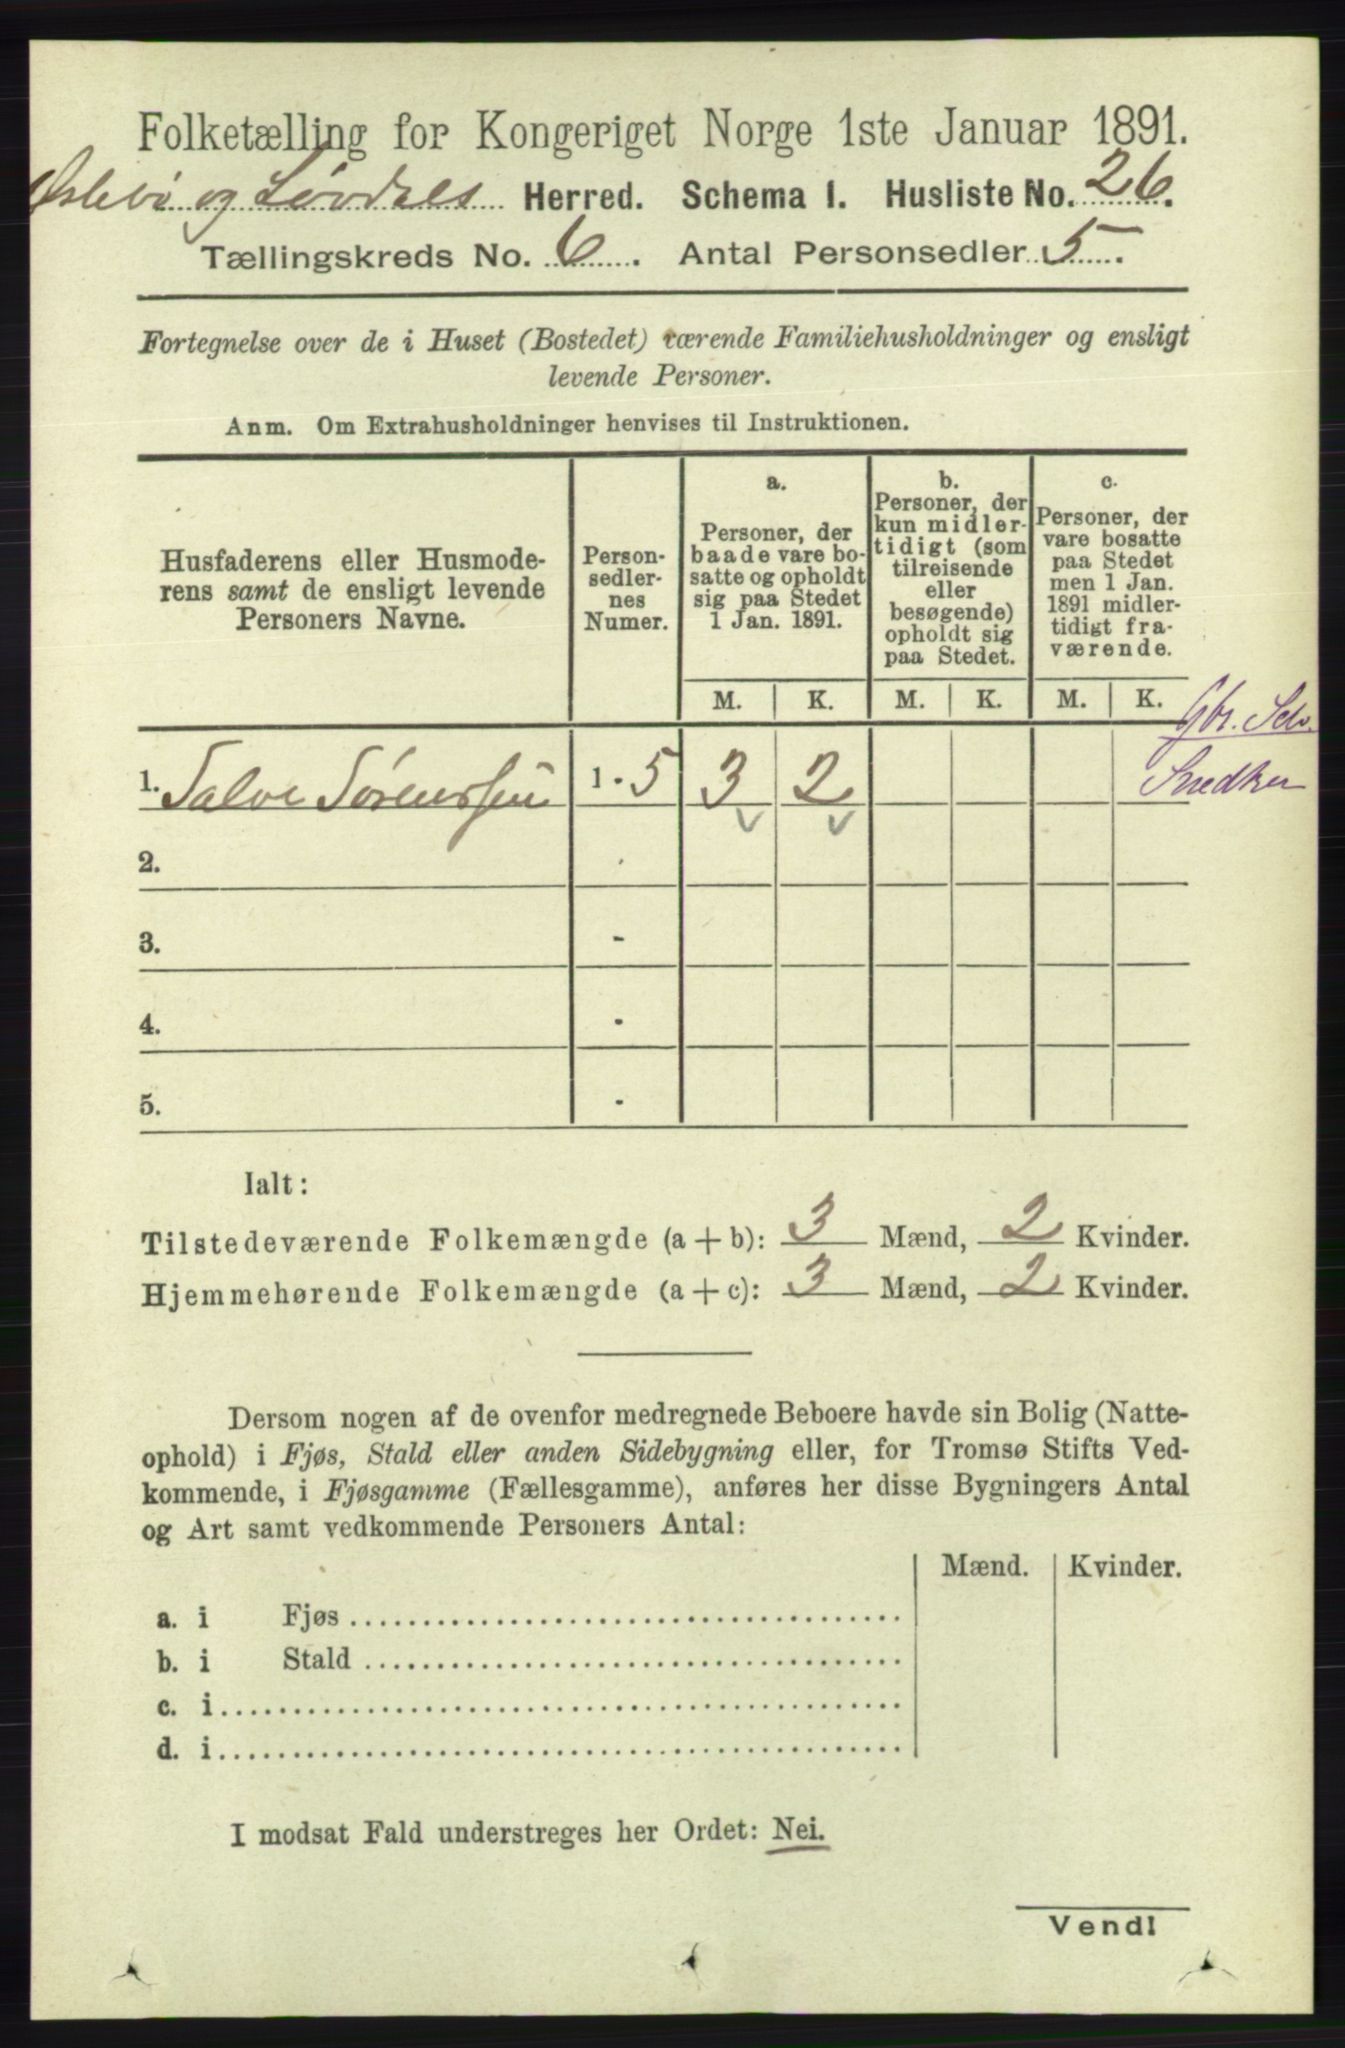 Folketælling for Kongeriget Norge 1ste Januar 1891.
Øslebø og Løvdals Herred. Schema 1. Husliste No. 26.
Tællingskreds No. 6. Antal Personsedler 5.
Fortegnelse over de i Huset (Bostedet) værende Familiehusholdninger og ensligt
levende Personer.
Anm. Om Extrahusholdninger henvises til Instruktionen.
Husfaderens eller Husmode-
rens samt de ensligt levende
Personers Navne.
Person-
sedler-
nes
Numer.
a.
Personer, der
baade vare bo-
satte og opholdt
sig paa Stedet
1 Jan. 1891.
b.
Personer, der
kun midler-
tidigt (som
tilreisende
eller
besøgende)
opholdt sig
paa Stedet.
c.
Personer, der
vare bosatte
paa Stedet
men 1 Jan.
1891 midler-
tidigt fra-
værende.
M. K. M. K. M. K.
Gbr. Selv.
Snedker
1. Salve Sørenssen 1 - 5 3 2
2.
3. -
4. -
5. -
Ialt:
Tilstedeværende Folkemængde (a + b): 3 Mænd, 2 Kvinder.
Hjemmehørende Folkemængde (a + c): 3 Mænd, 2 Kvinder.
Dersom nogen af de ovenfor medregnede Beboere havde sin Bolig (Natte-
ophold) i Fjøs, Stald eller anden Sidebygning eller, for Tromsø Stifts Ved-
kommende, i Fjøsgamme (Fællesgamme), anføres her disse Bygningers Antal
og Art samt vedkommende Personers Antal:
Mænd. Kvinder.
a. i Fjøs
b. i Stald
c. i
d. i
I modsat Fald understreges her Ordet: Nei.
Vend!